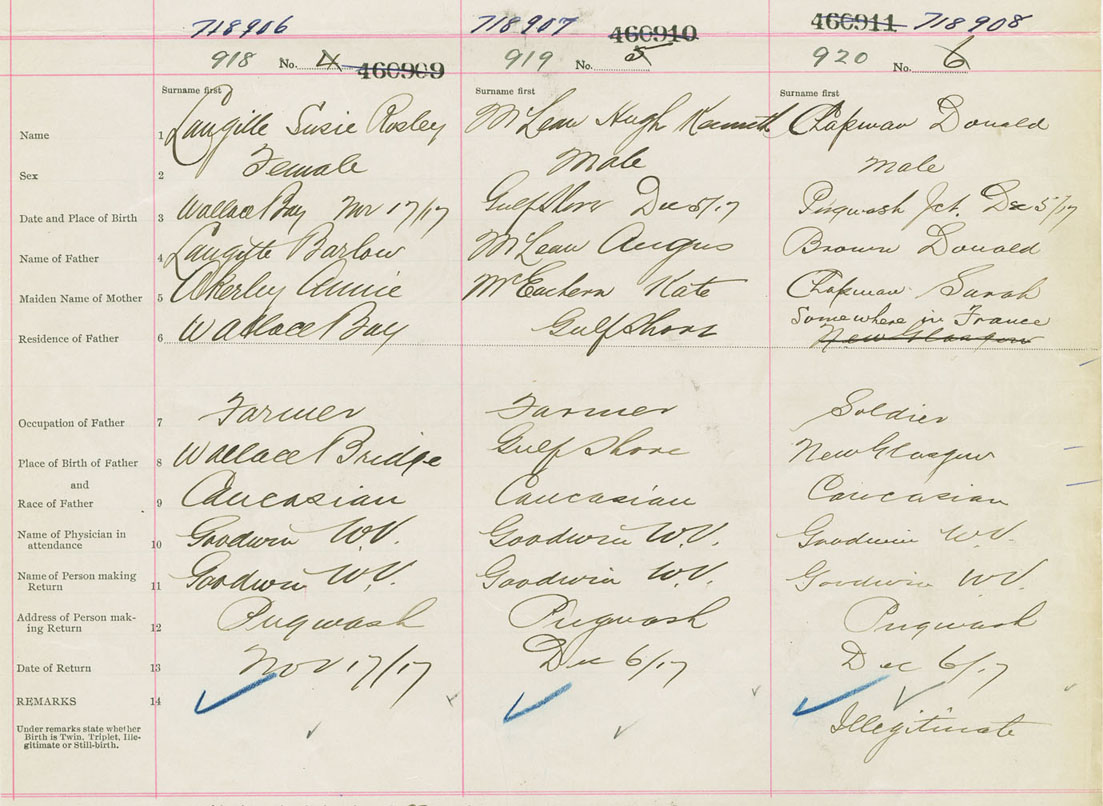 718906 718907 460910 460911 718908
918 No. 4 460909 919 No. 5 920 No. 6
Surname first Surname first Surname first
Name 1 Langille Susie Rosley McLean Hugh Kenneth Chapman Donald
Sex 2 Female Male Male
Date and Place of Birth 3 Wallace Bay Nov 17/17 Gulf Shore Dec 5/17 Pugwash Jct. Dec 5/17
Name of Father 4 Langille Barlow McLean Angus Brown Donald
Maiden Name of Mother 5 Akerley Annie McEachern Kate Chapman Sarah
Somewhere in France
Residence of Father 6 Wallace Bay Gulf Shore New Glasgow
Occupation of Father 7 Farmer Farmer Soldier
Place of Birth of Father 8 Wallace Bridge Gulf Shore New Glasgow
and
Race of Father 9 Caucasian Caucasian Caucasian
Name of Physician in
attendance 10 Goodwin W.V. Goodwin W.V. Goodwin W.V.
Name of Person making
Return 11 Goodwin W.V. Goodwin W.V. Goodwin W.V.
Address of Person mak-
ing Return 12 Pugwash Pugwash Pugwash
Date of Return 13 Nov 17/17 Dec 6/17 Dec 6/17
REMARKS 14
Under remarks state whether
Birth is Twin. Triplet, Ille-
gitimate or Still-birth.
Illegitimate